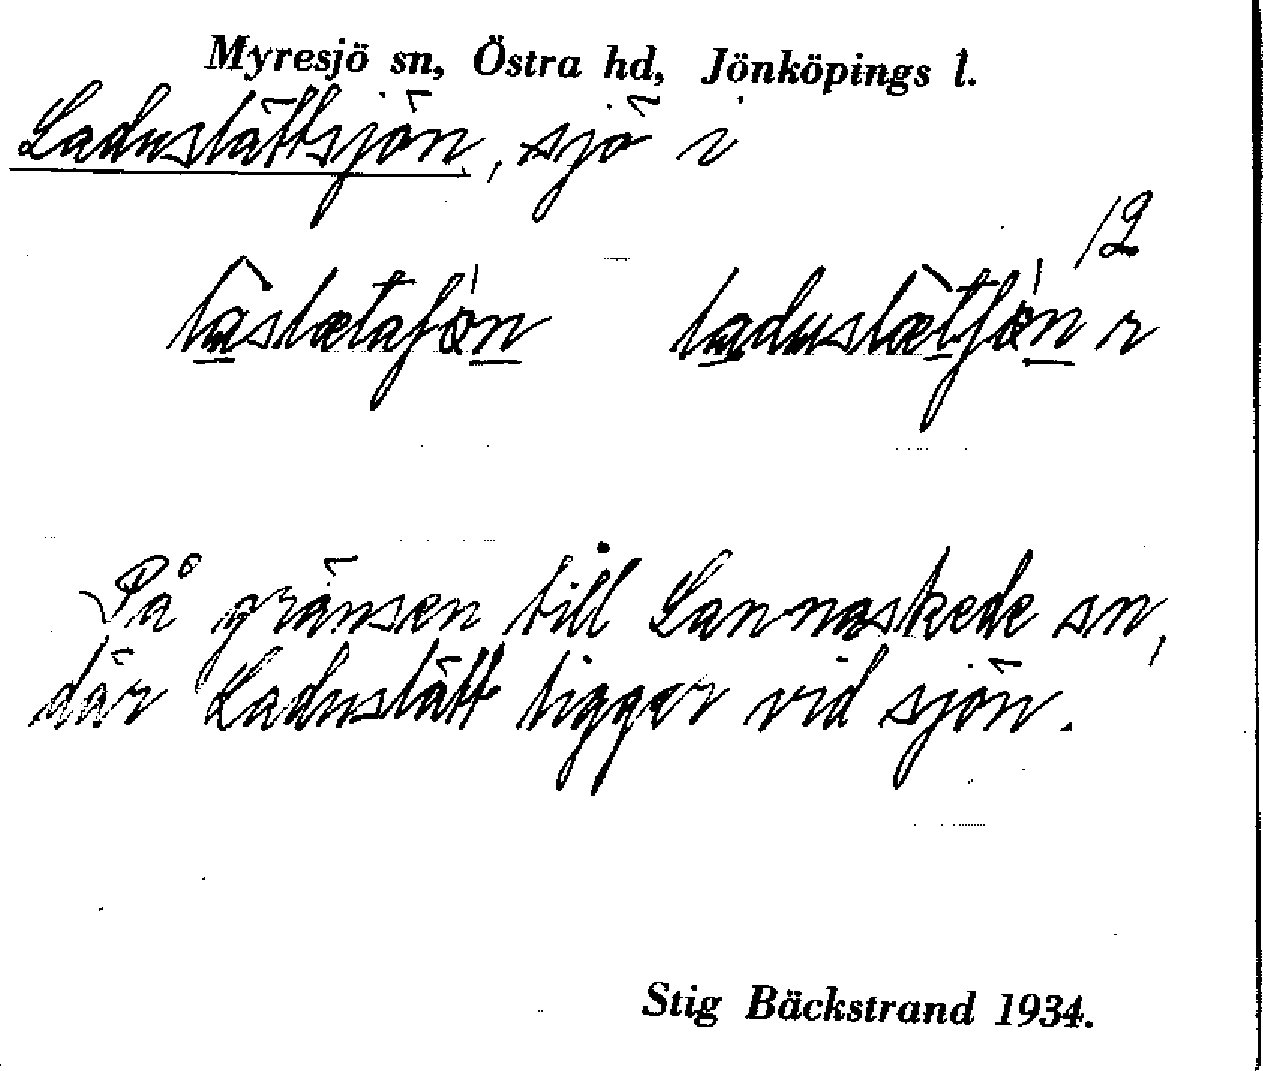 Myresjö sn, Östra hd, Jönköpings l.
Laduslättsjön, sjö i
12
På gränsen till Lannaskede sn,
där Laduslätt ligger vid sjön.
Stig Bäckstrand 1934.